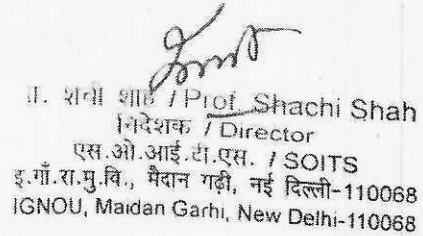 शची शाह / Prof. Shachi Shah
निदेशक / Director
एस.ओ.आई.टी.एस. / SOITS
इ.गाँ.रा.मु.वि., मैदान गढ़ी, नई दिल्ली-110068
IGNOU, Maidan Garhi, New Delhi-110068